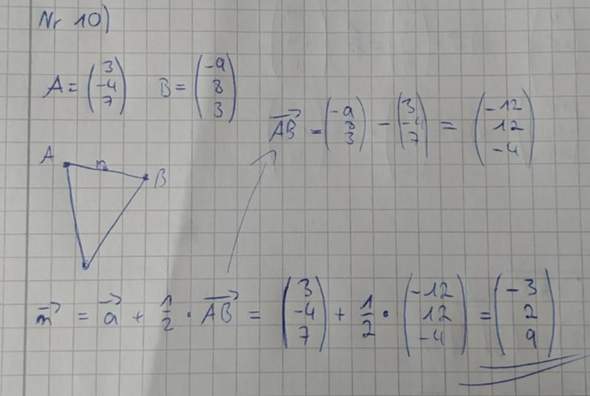 Nr 10)
A = (3 -4 7) B = (-9 8 3)
AB = (-9 8 3) - (3 -4 7) = (-12 12 -4)
A m B
m = a + 1/2 · AB = (3 -4 7) + 1/2 · (-12 12 -4) = (-3 2 9)